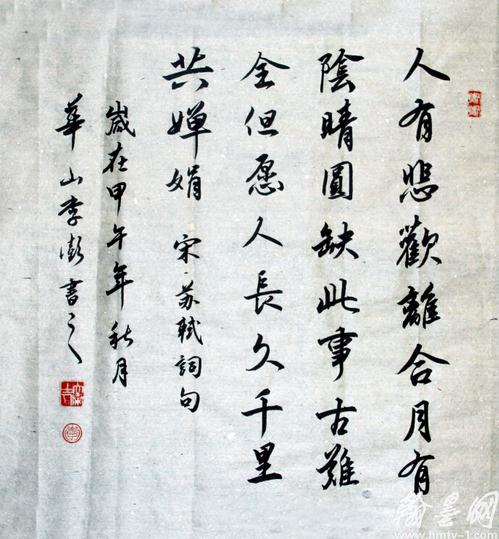 人有悲歡離合月有
陰晴圓缺此事古難
全但愿人長久千里
共婵娟 宋·苏軾詞句
歲在甲午年秋月
華山李澎書之
翰墨网
www.hmty-1.com